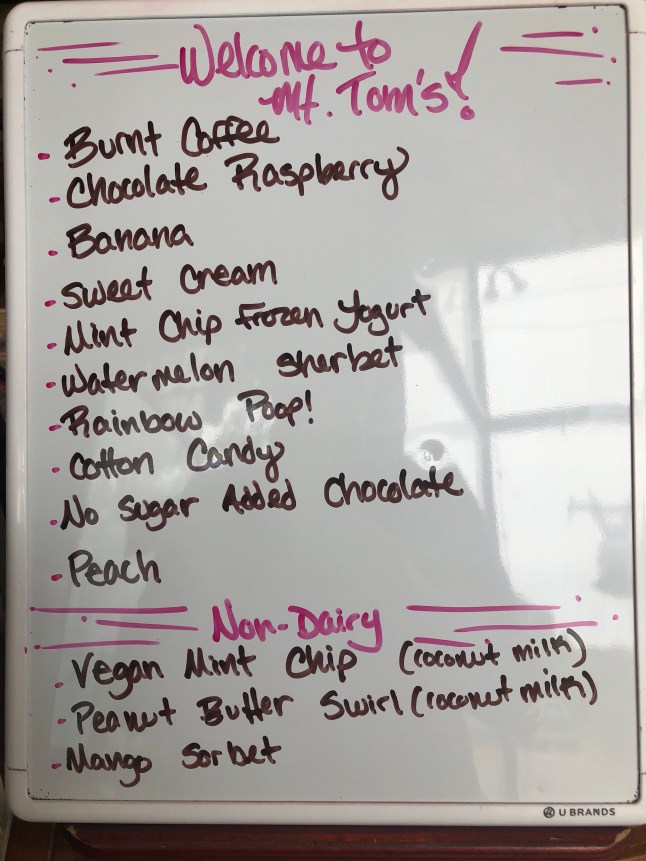 Welcome to
Mt. Tom's!
• Burnt Coffee
• Chocolate Raspberry
• Banana
• Sweet Cream
• Mint Chip Frozen Yogurt
• Watermelon Sherbet
• Rainbow Poop!
• Cotton Candy
• No Sugar Added Chocolate
• Peach
Non-Dairy
• Vegan Mint Chip (coconut milk)
• Peanut Butter Swirl (coconut milk)
• Mango Sorbet
U BRANDS